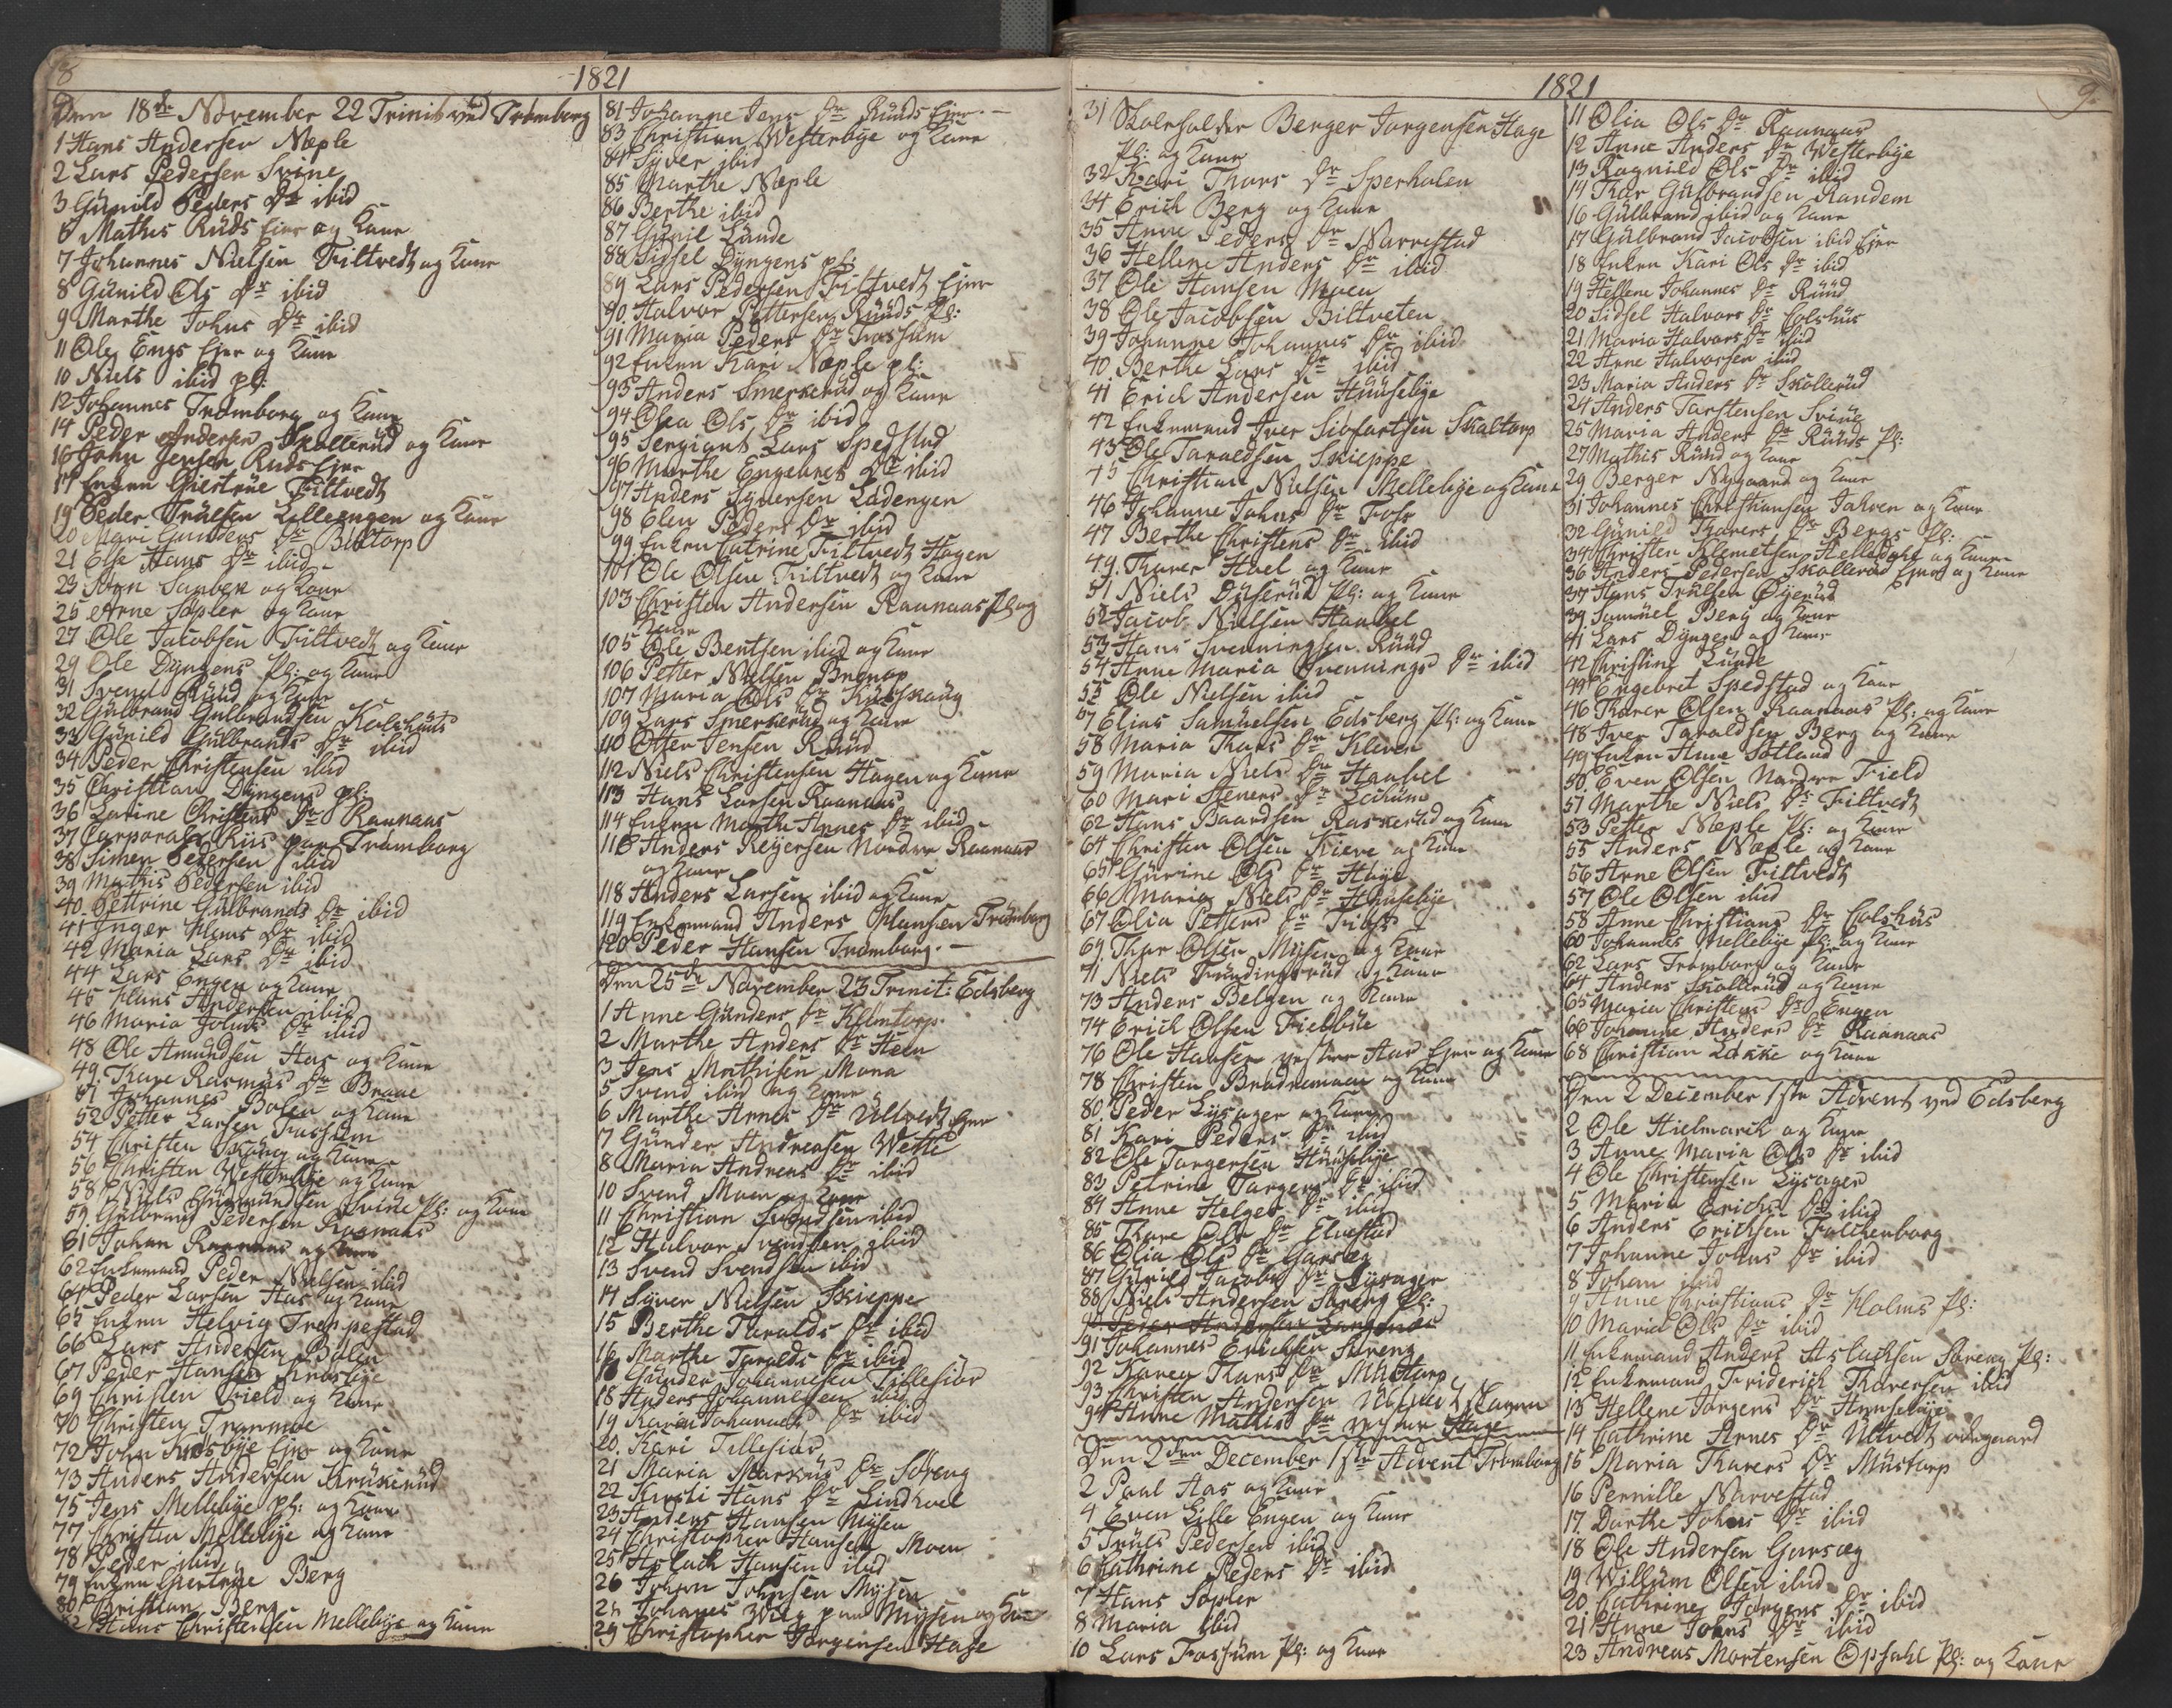 8
1821
Den 18de November 22 Trinit ved Trömborg
1 Hans Andersen Næple
2 Lars Pedersen Svine
3 Günild Peders Dr ibid
6 Mathis Rüds Ejer og Kone
7 Johannes Nielsen Filtvedt og Kone
8 Günild Ols Dr ibid
9 Marthe Johns Dr ibid
11 Ole Engs Ejer og Kone
10 Niels ibid pl:
12 Johannes Trömborg og Kone
14 Peder Andersen Skollerüd og Kone
16 John Jensen Ruds Ejer
17 Enken Giertrüe Filtvedt
19 Peder Trülsen Lilleengen og Kone
20 Mari Gunders Dr Biltorp
21 Else Hans Dr ibid
23 Sanben og Kone
25 Arne Sopler og Kone
27 Ole Jacobsen Filtvedt og Kone
29 Ole Dÿngens Pl: og Kone
31 Svend Rüüd og Kone
32 Gülbrand Gulbrandsen Kolshüüs
33 Günild Gülbrands Dr ibid
34 Peder Christensen ibid
35 Christian Dÿngens pl:
36 Larine Christens Dr Raanaas
37 Corporal Riis paa Trömborg
38 Simen Pedersen ibid
39 Mathis Pedersen ibid
40 Pettrine Gülbrands Dr ibid
41 Inger Hans Dr ibid
42 Maria Lars Dr ibid
44 Lars Engen og Kone
45 Hans Andersen ibid
46 Maria Johns Dr ibid
48 Ole Amundsen Aas og Kone
49 Kare Rasmüs Dr Braae
51 Johannes Bolen og Kone
52 Petter Larsen Fossum
54 Christen Skoug og Kone
56 Christen Westerbÿe og Kone
58 Niels Güdmündsen Svine Pl: og Kone
59 Gülbrand Pedersen Raanaas
61 Johan Raanaas og Kone
62 Enkemand Peder Nielsen ibid
64 Peder Larsen Aas og Kone
65 Enken Helvig Trompestad
66 Lars Andersen Bolen
67 Peder Hansen
69 Christen Field og Kone
70 Christen Trømmoe
72 John Ejer og Kone
73 Anders Andersen Krükerüd
75 Jens Mellebÿe pl: og Kone
77 Christen Mellebÿe og Kone
78 Peder ibid
79 Enken Giertrüe Berg
80 Christian Berg
82 Hans Christensen Mellebÿe og Kone
81 Johanne Jens Dr Rüüds Ejer.—
83 Christian Westerbÿe og Kone
84 Siver ibid
85 Marthe Næple
86 Berthe ibid
87 Günil Lünde
88 Sidsel Dÿngens pl:
89 Lars Pedersen Filtvedt Ejer
90 Halvor Pettersen Rüüds Pl:
91 Maria Peders Dr Fossum
92 Enken Kari Næple pl:
93 Anders Smerkerüd og Kone
94 Olea Ols Dr ibid
95 Sergiant Lars Spedstad
96 Marthe Engebrets Dr ibid
97 Anders Ladengen
98 Elen Peders Dr ibid
99 Enken Catrine Filtvedt Hagen
101 Ole Olsen Filtvedt og Kone
103 Christen Andersen Raanaas Pl: og
Kone
105 Ole Bentsen ibid og Kone
106 Petter Nielsen
107 Maria Ols Dr
109 Lars Smerkerüd og Kone
110 Otter Jensen Rüüd
112 Niels Christensen Hagen og Kone
113 Hans Larsen Raanaas
114 Enken Marthe Arnes Dr ibid
116 Anders Reÿersen Nordre Raanaas
og Kone
118 Anders Larsen ibid og Kone
119 Enkemand Anders Hansen Trömborg
120 Peder Hansen Trömborg.—
Den 25de November 23 Trinit: Edsberg
1 Anne Günders Dr
2 Marthe Anders Dr Heen
3 Jens Mathisen Mona
5 Svend ibid og Kone
6 Marthe Arnes Dr Ültvedt Ejer
7 Günder Andreasen
8 Maria Andreas Dr ibid
10 Svend Moen og Kone
11 Christian Svendsen ibid
12 Halvor Svendsen ibid
13 Svend Svendsen ibid
14 Siver Nielsen Skieppe
15 Berthe Taralds Dr ibid
16 Marthe Taralds Dr ibid
18 Günder Johannesen Tillesiør
18 Anders Johannesen ibid
19 Karen Johannes Dr ibid
20 Kari Tillesiør
21 Maria Markus Dr Søreng
22 Kirsti Hans Dr Lindhoel
23 Anders Hansen Mÿsen
24 Christopher Hansen Moen
25 Aslack Hansen ibid
26 Johan Johnsen Mÿsen
28 Johanes Wiig paa Mÿsen og Kone
29 Christopher Jörgensen Hage
9
1821
31 Skoleholder Berger Jorgensen Hage
Pl: og Kone
32 Kari Thors Dr Sperholen
34 Erich Berg og Kone
35 Anne Peders Dr Narvestad
36 Hellene Anders Dr ibid
37 Ole Hansen Moen
38 Ole Jacobsen Biltveten
39 Johanne Johannes Dr ibid
40 Berthe Lars Dr ibid
41 Erich Andersen Hüüsebÿe
42 Enkemand Iver Siofartsen Skaltorp
43 Ole Taraldsen Skieppe
45 Christian Nielsen Mellebÿe og Kone
46 Johanne Johns Dr Foss
47 Berthe Christens Dr ibid
49 Thorer Hoel og Kone
51 Niels Düserüd Pl: og Kone
52 Jacob Nielsen Haabel
53 Hans Svenningsen Rüüd
54 Anne Maria Svennings Dr ibid
55 Ole Nielsen ibid
57 Elias Samüelsen Edsberg Pl: og Kone
58 Maria Thors Dr Kleven
59 Maria Niels Dr Haabel
60 Mari Steners Dr
62 Hans Baardsen Raskerüd og Kone
64 Christen Olsen Kieve og Kone
65 Gürine Ols Dr
66 Maria Niels Dr Hüüsebÿe
67 Olia Petters Dr
69 Thor Olsen Mÿsen og Kone
71 Niels Trüdingsrüd og Kone
73 Anders Belgen og Kone
74 Erich Olsen Fielbÿe
76 Ole Hansen Aas Ejer og Kone
78 Christen Brødremoen og Kone
80 Peder Lÿsager og Kone
81 Kari Peders Dr ibid
82 Ole Torgersen Hüüsebÿe
83 Petrine Torgers Dr ibid
84 Anne Helges Dr ibid
85 Thore Ols Dr Elvestad
86 Olia Ols Dr Garseg
87 Günild Jacobs Dr Lÿsager
88 Niels Andersen Søreng Pl:
91 Johannes Erichsen Søreng
92 Karen Thors Dr
93 Christen Andersen Ültvedt
94 Anne Mathis Dr Hage
Den 2den December 1ste Advent Trömborg
2 Paul Aas og Kone
4 Even Lille Engen og Kone
5 Trüls Pedersen ibid
6 Cathrine Peders Dr ibid
7 Hans Sopler
8 Maria ibid
10 Lars Fossum Pl: og Kone
11 Olia Ols Dr Raanaas
12 Anne Anders Dr Westerbÿe
13 Ragnild Ols Dr ibid
14 Thor Gülbrandsen Randem
16 Gülbrand ibid og Kone
17 Gülbrand Jacobsen ibid Ejer
18 Enken Kari Ols Dr ibid
19 Hellene Johannes Dr Rüüd
20 Sidsel Halvors Dr Colshüs
21 Maria Halvors Dr ibid
22 Arne Halvorsen ibid
23 Maria Anders Dr Skollerüd
24 Anders Tarstensen Svine
25 Maria Anders Dr Rüüds Pl:
27 Mathis Rüüd og Kone
29 Berger Nÿgaard og Kone
31 Johannes Christiansen Jahren og Kone
32 Günild Thorers Dr Bergs Pl:
34 Christen Klemetsen Helledahl og Kone
36 Anders Pedersen Skollerud Ejer og Kone
37 Hans Trülsen Øÿerüd
39 Samüel Berg og Kone
41 Lars Dÿngen og Kone
42 Christine Lünde
44 Engebret Spedstad og Kone
46 Thorer Olsen Raanaas Pl: og Kone
48 Iver Taraldsen Berg og Kone
49 Enken Anne Sotland
50 Even Olsen Nordre Field
51 Marthe Niels Dr Filtvedt
53 Petter Næple Pl: og Kone
55 Anders Næple og Kone
56 Arne Olsen Filtvedt
57 Ole Olsen ibid
58 Anne Christians Dr Colshüs
60 Johannes Mellebÿe Pl: og Kone
62 Lars Tromborg og Kone
64 Anders Skollerüd og Kone
65 Maria Christens Dr Engen
66 Johanne Anders Dr Raanaas
68 Christian Løkke og Kone
Den 2 December 1ste Advent ved Edsberg
2 Ole Hielmarck og Kone
3 Anne Maria Ols Dr ibid
4 Ole Christensen Lÿsager
5 Maria Erichs Dr ibid
6 Anders Erichsen Falckenborg
7 Johanne Johns Dr ibid
8 Johan ibid
9 Anne Christians Dr Holms Pl:
10 Maria Ols Dr ibid
11 Enkemand Anders Aslachsen Søreng Pl:
12 Enkemand Friderich Thoresen ibid
13 Hellene Jörgens Dr Hüüsebÿe
14 Cathrine Arnes Dr Ültvedt ødegaard
15 Maria Thorers Dr Müstorp
16 Pernille Narvestad
17 Dorthe Johns Dr ibid
18 Ole Andersen Garseg
19 Willüm Olsen ibid
20 Cathrine Jörgens Dr ibid
21 Anne Johns Dr ibid
23 Andreas Mortensen Opsahl Pl: og Kone